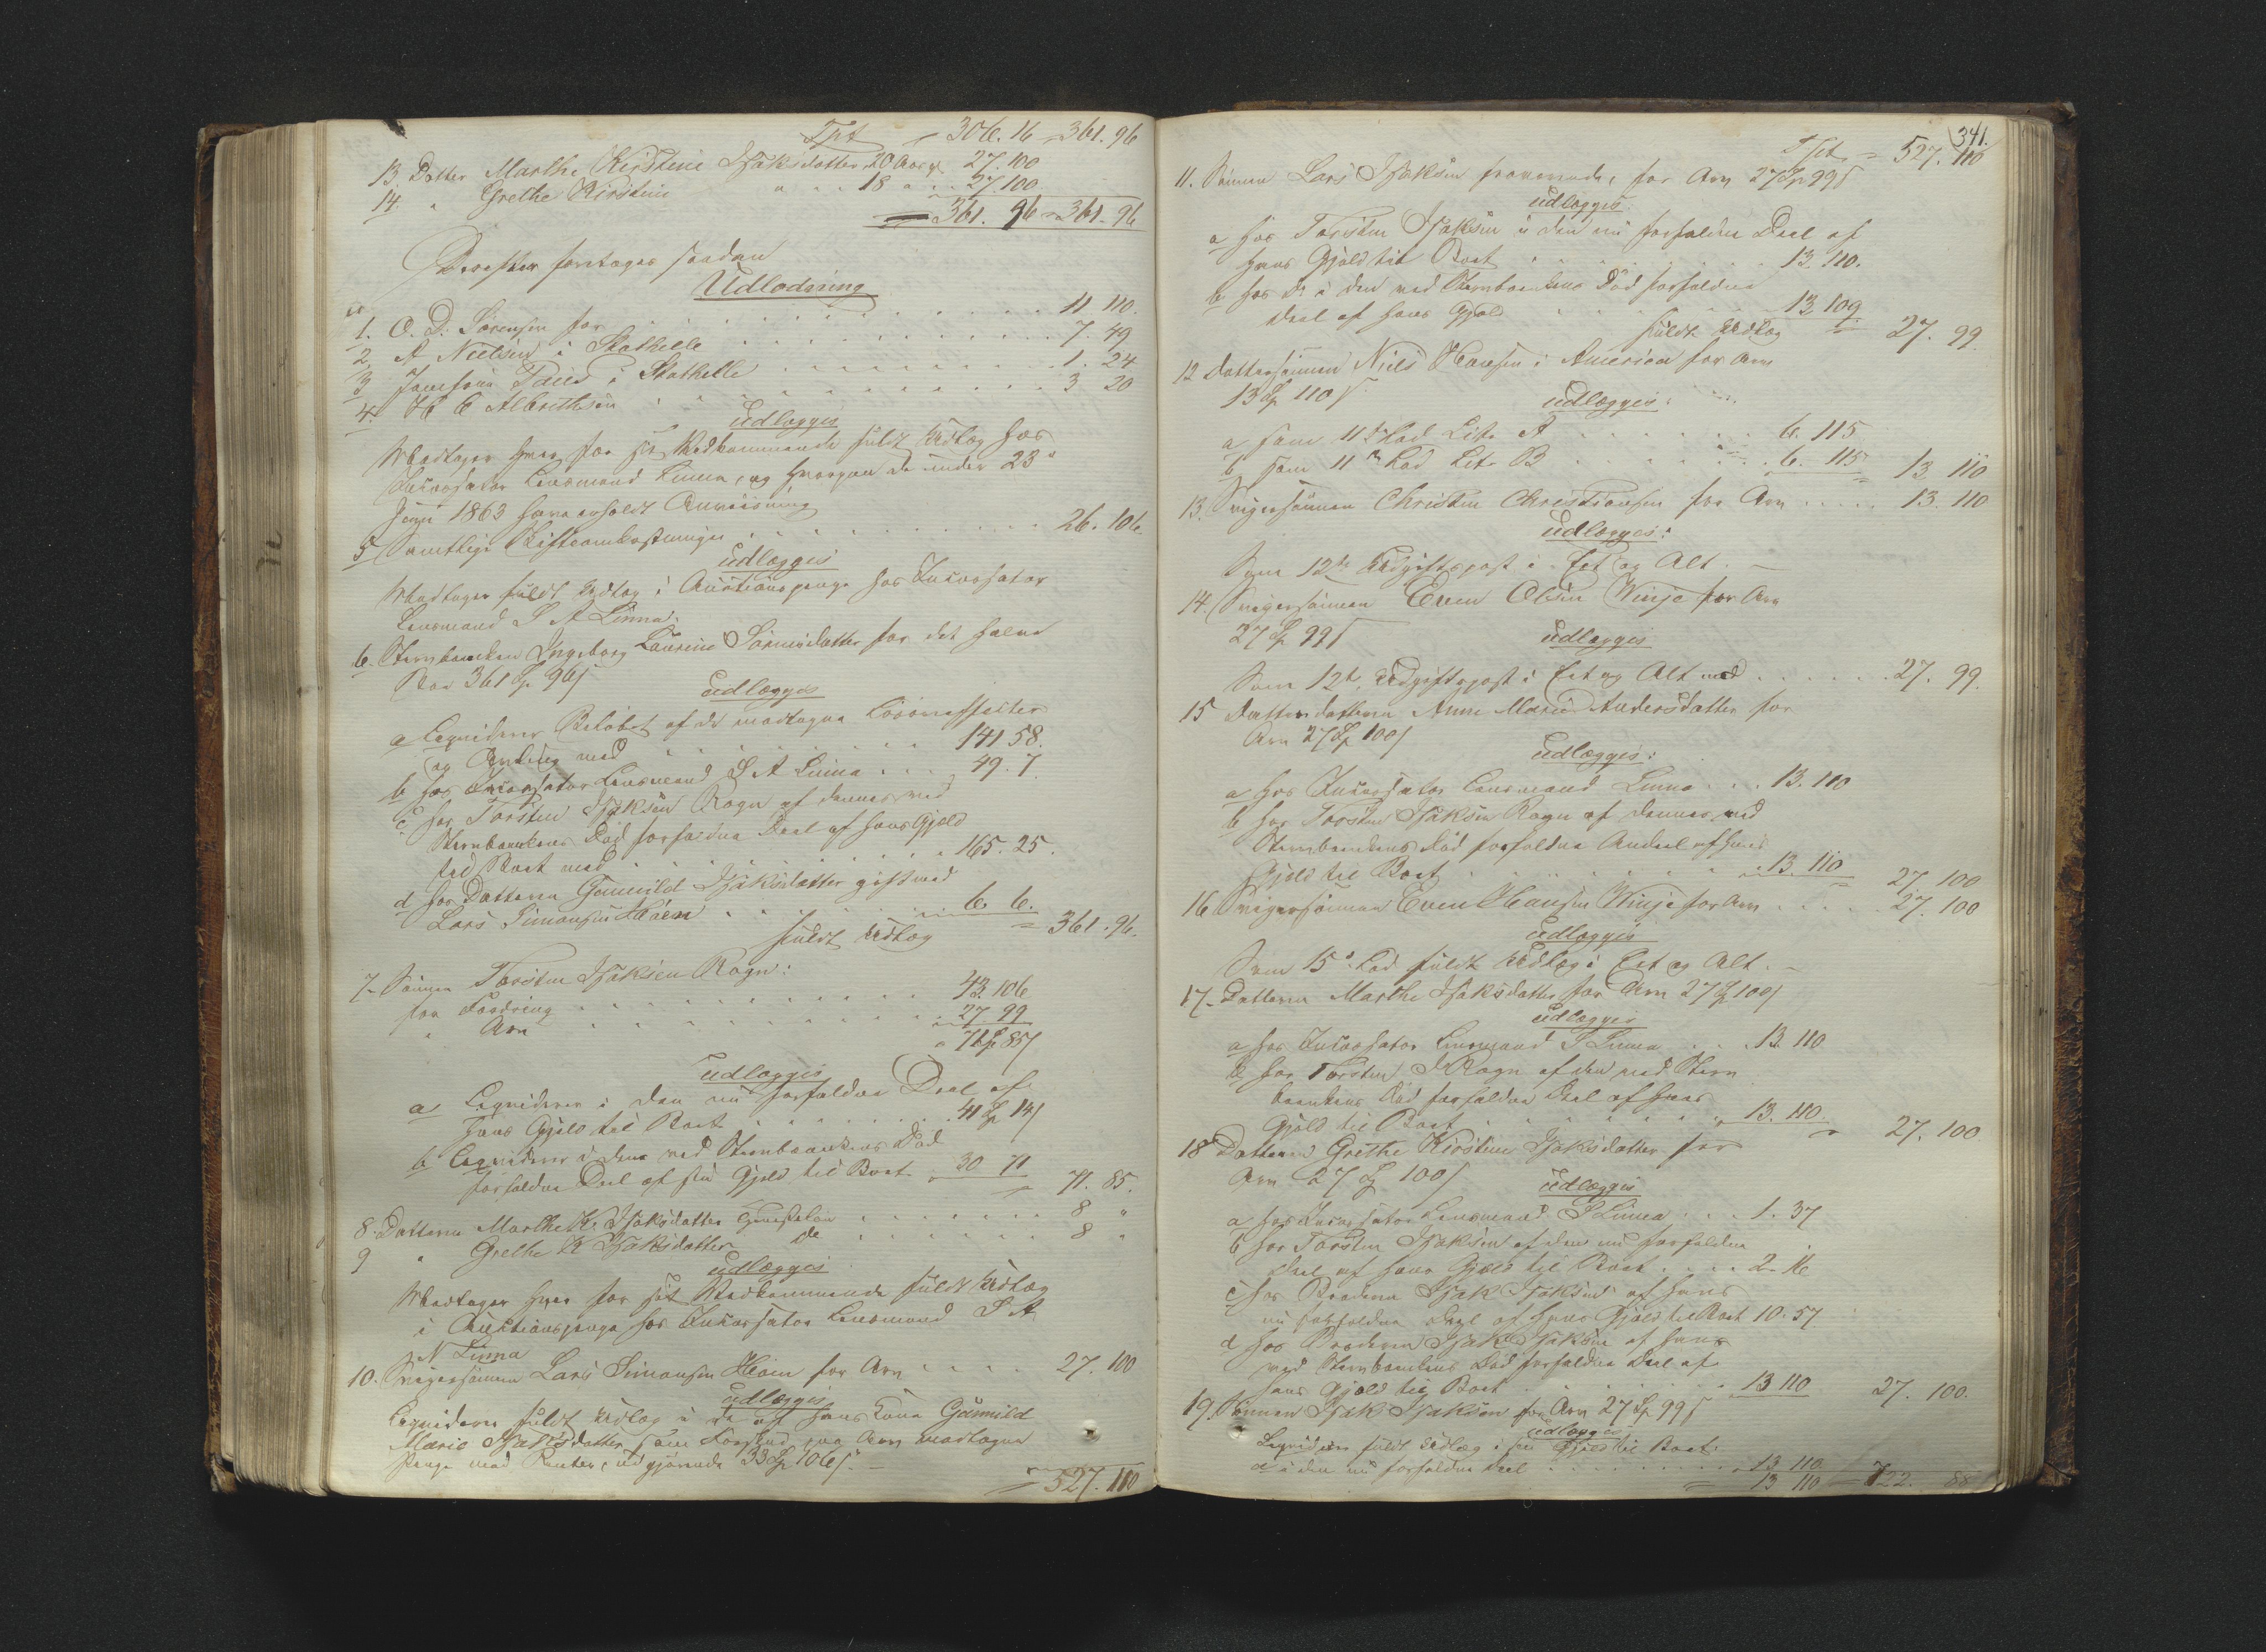 Tpt 306. 16 = 361. 96
13 Datter Marthe Kirstine Isaksdatter 20 Aar 27. 100
14. " Grethe Kirstine " 18 " 27. 100
361. 96 = 361. 96
Derefter foretages saadan
Udlodning
1. O. D. Sørensen for 11 110.
2. A Nielsen i Stathelle 7. 49
3 Jomfrue i Stathelle 1. 24
4. H C Albrethsen 3 20
udlægges
Modtager hver for sit Vedkommende fuldt Udlæg hos
Incassator Lensmand Linna, og hvorpaa de under 23de
Juni 1863 have erholdt Anviisning
5 Samtlige Skifteomkostninger 26. 106
udlægges
Modtager fuldt Udlæg i Auctionspenge hos Incassator
Lensmand S A Linna.
6. Stervboenken Ingeborg Laurine Sørensdatter for det halve
Boe 361 Sp 96 s
udlægges
a Liqviderer Beløbet af de modtagne Løsøreeffecter
og Andeel med 141 58.
b hos Incassator Lensmand S A Linna 49. 7
c hos Torsten Isaksen Rogn af dennes ved
Stervboenkens Død forfaldne Deel af hans Gjeld
til Boet med 165. 25.
d hos Datteren Gunnild Isaksdatter gift med
Lars Simonsen Haaen 6. 6.
fuldt Udlæg = 361. 96.
7. Sønnen Torsten Isaksen Rogn:
for Fordring 43. 106
" Arv 27. 99
71 Sp 85 s
udlægges
a Liqviderer i den nu forfaldne Deel af
hans Gjeld til Boet 41 Sp 14 s
b Liqviderer i den ved Stervboenkens Død
forfaldne Deel af sin Gjeld til Boet 30 71
71. 85.
8. Datteren Marthe K. Isaksdatter 8 "
9 " Grethe K Isaksdatter do 8 "
udlægges
Modtager hver for sit Vedkommende fuldt Udlæg
i Auktionspenge hos Incassator Lensmand S A
N Linna
10. Svigersønnen Lars Simonsen Haaen for Arv 27. 100
udlægges
Liqviderer fuldt Udlæg i de af hans Kone Gunnild
Marie Isaksdatter som Forskud paa Arv modtagne
Penge med Renter, udgjørende 33 Sp 106 s.
527. 110
341.
Tpt. = 527. 110
11. Sønnen Lars Isaksen fraværende, for Arv 27 Sp 99 s
udlægges
a hos Torsten Isaksen i den nu forfaldne Deel af
hans Gjeld til Boet 13. 110.
b hos Do i den ved Stervboenkens Død forfaldne
Deel af hans Gjeld 13. 109
fuldt Udlæg 27. 99
12 Dattersønnen Niels Hansen i America for Arv
13 Sp 110 s
udlægges:
a som 11te Lod Litr A 6. 115
b som 11te Lod Litr B 6. 115 13. 110
13. Svigersønnen Christen Christiansen for Arv 13. 110
udlægges:
Som 12te Udgiftspost i Eet og Alt.
14. Svigersønnen Even Olsen Winje for Arv
27 Sp 99 s
udlægges
Som 12te Udgiftspost i Eet og Alt med 27. 99.
15 Datterdatteren Anne Marie Andersdatter for
Arv 27 Sp 100 s
udlægges:
a hos Incassator Lensmand Linna 13. 110
b hos Torsten Isaksen Rogn af dennes ved
Stervboenkens Død forfaldne Andeel af hans
Gjeld til Boet 13. 110 27. 100
16 Svigersønnen Even Hansen Winje for Arv 27. 100
udlægges
Som 15de Lod fuldt Udlæg i Eet og Alt.
17. Datteren Marthe Isaksdatter for Arv 27 Sp 100 s
udlægges
a hos Incassator Lensmand S Linna 13. 110
b hos Torsten I Rogn af den ved Sterv
boenkens Død forfaldne Deel af hans
Gjeld til Boet 13. 110. 27. 100
18 Datteren Grethe Kirstine Isaksdatter for
Arv 27 Sp 100 s
udlægges
a hos Incassator Lensmand S Linna 1. 37
b hos Torsten Isaksen af den nu forfaldne
Deel af hans Gjeld til Boet 2. 16
c hos Broderen Isak Isaksen af hans
nu forfaldne Deel af hans Gjeld til Boet 10. 57
d hos Broderen Isak Isaksen af hans
ved Stervboenkens Død forfaldne Deel af
hans Gjeld til Boet 13 110 27. 100.
19. Sønnen Isak Isaksen for Arv 27 Sp 99 s
udlægges
Liqviderer fuldt Udlæg i sin Gjeld til Boet:
a i den nu forfaldne Deel 13 110
13 110 = 722. 88